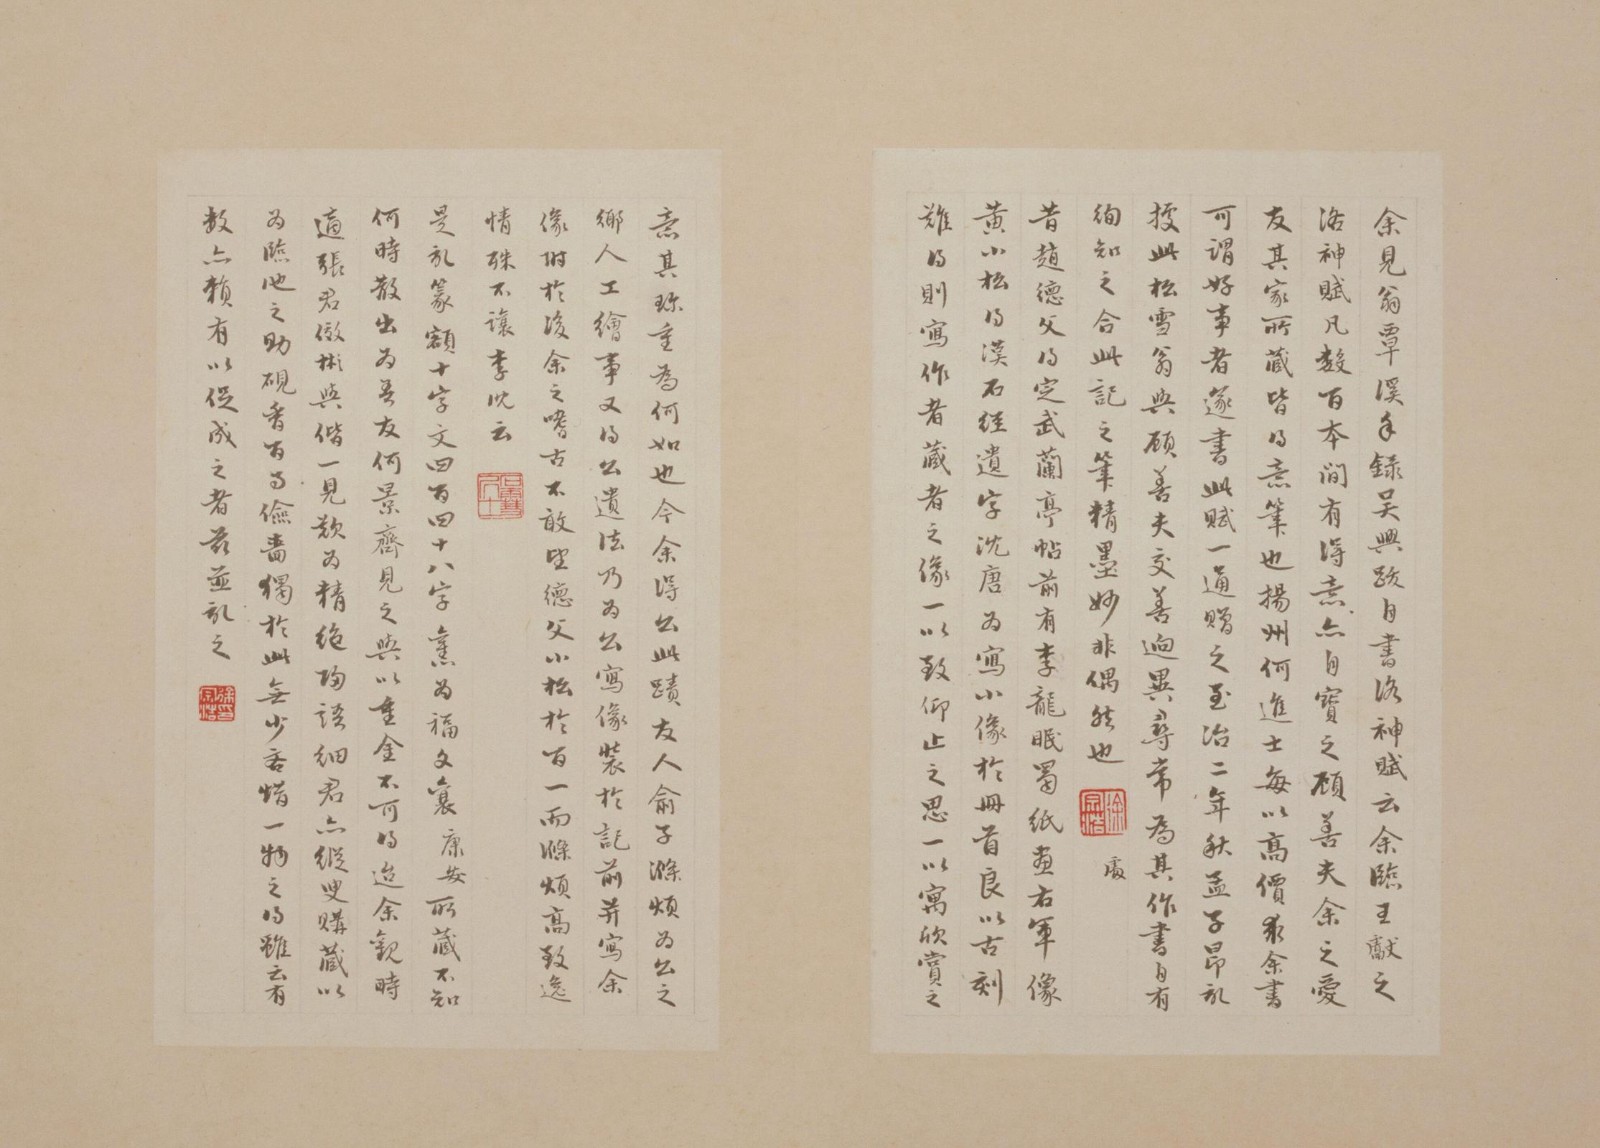 余見翁覃溪手錄吳興跋自書洛神賦云余臨王獻之
洛神賦凡數百本間有得意亦自寶之顧善夫余之愛
友其家所藏皆得意筆也揚州何進士每以高價求余書
可謂好事者遂書此賦一通贈之至治二年秋孟子昂記
據此松雪翁與顧善夫交善迥異尋常為其作書自有
絢知之合此記之筆精墨妙非偶然也
徐宗浩
處
昔趙德父得定武蘭亭帖前有李龍眠蜀紙畫右軍像
黃小松得漢石經遺字沈唐為寫小像於冊首良以古刻
難得則寫作者藏者之像一以致仰止之思一以寓欣賞之
意其珍重為何如也今余得公此蹟友人俞子滌煩為公之
鄉人工繪事又得公遺法乃為公寫像裝於記前并寫余
像附於後余之嗜古不敢望德父小松於百一而滌煩高致逸
情殊不讓李沈云
是記篆額十字文四百四十八字舊為福文襄康安所藏不知
何時散出為吾友何景齊見之與以重金不可得迨余觀時
適張君傚彬與偕一見歎為精絕歸語細君亦縱臾購藏以
為臨池之助硯香百日儉嗇獨於此無少吝惜一物之得雖云有
數亦賴有以促成之者茲並記之
徐宗浩